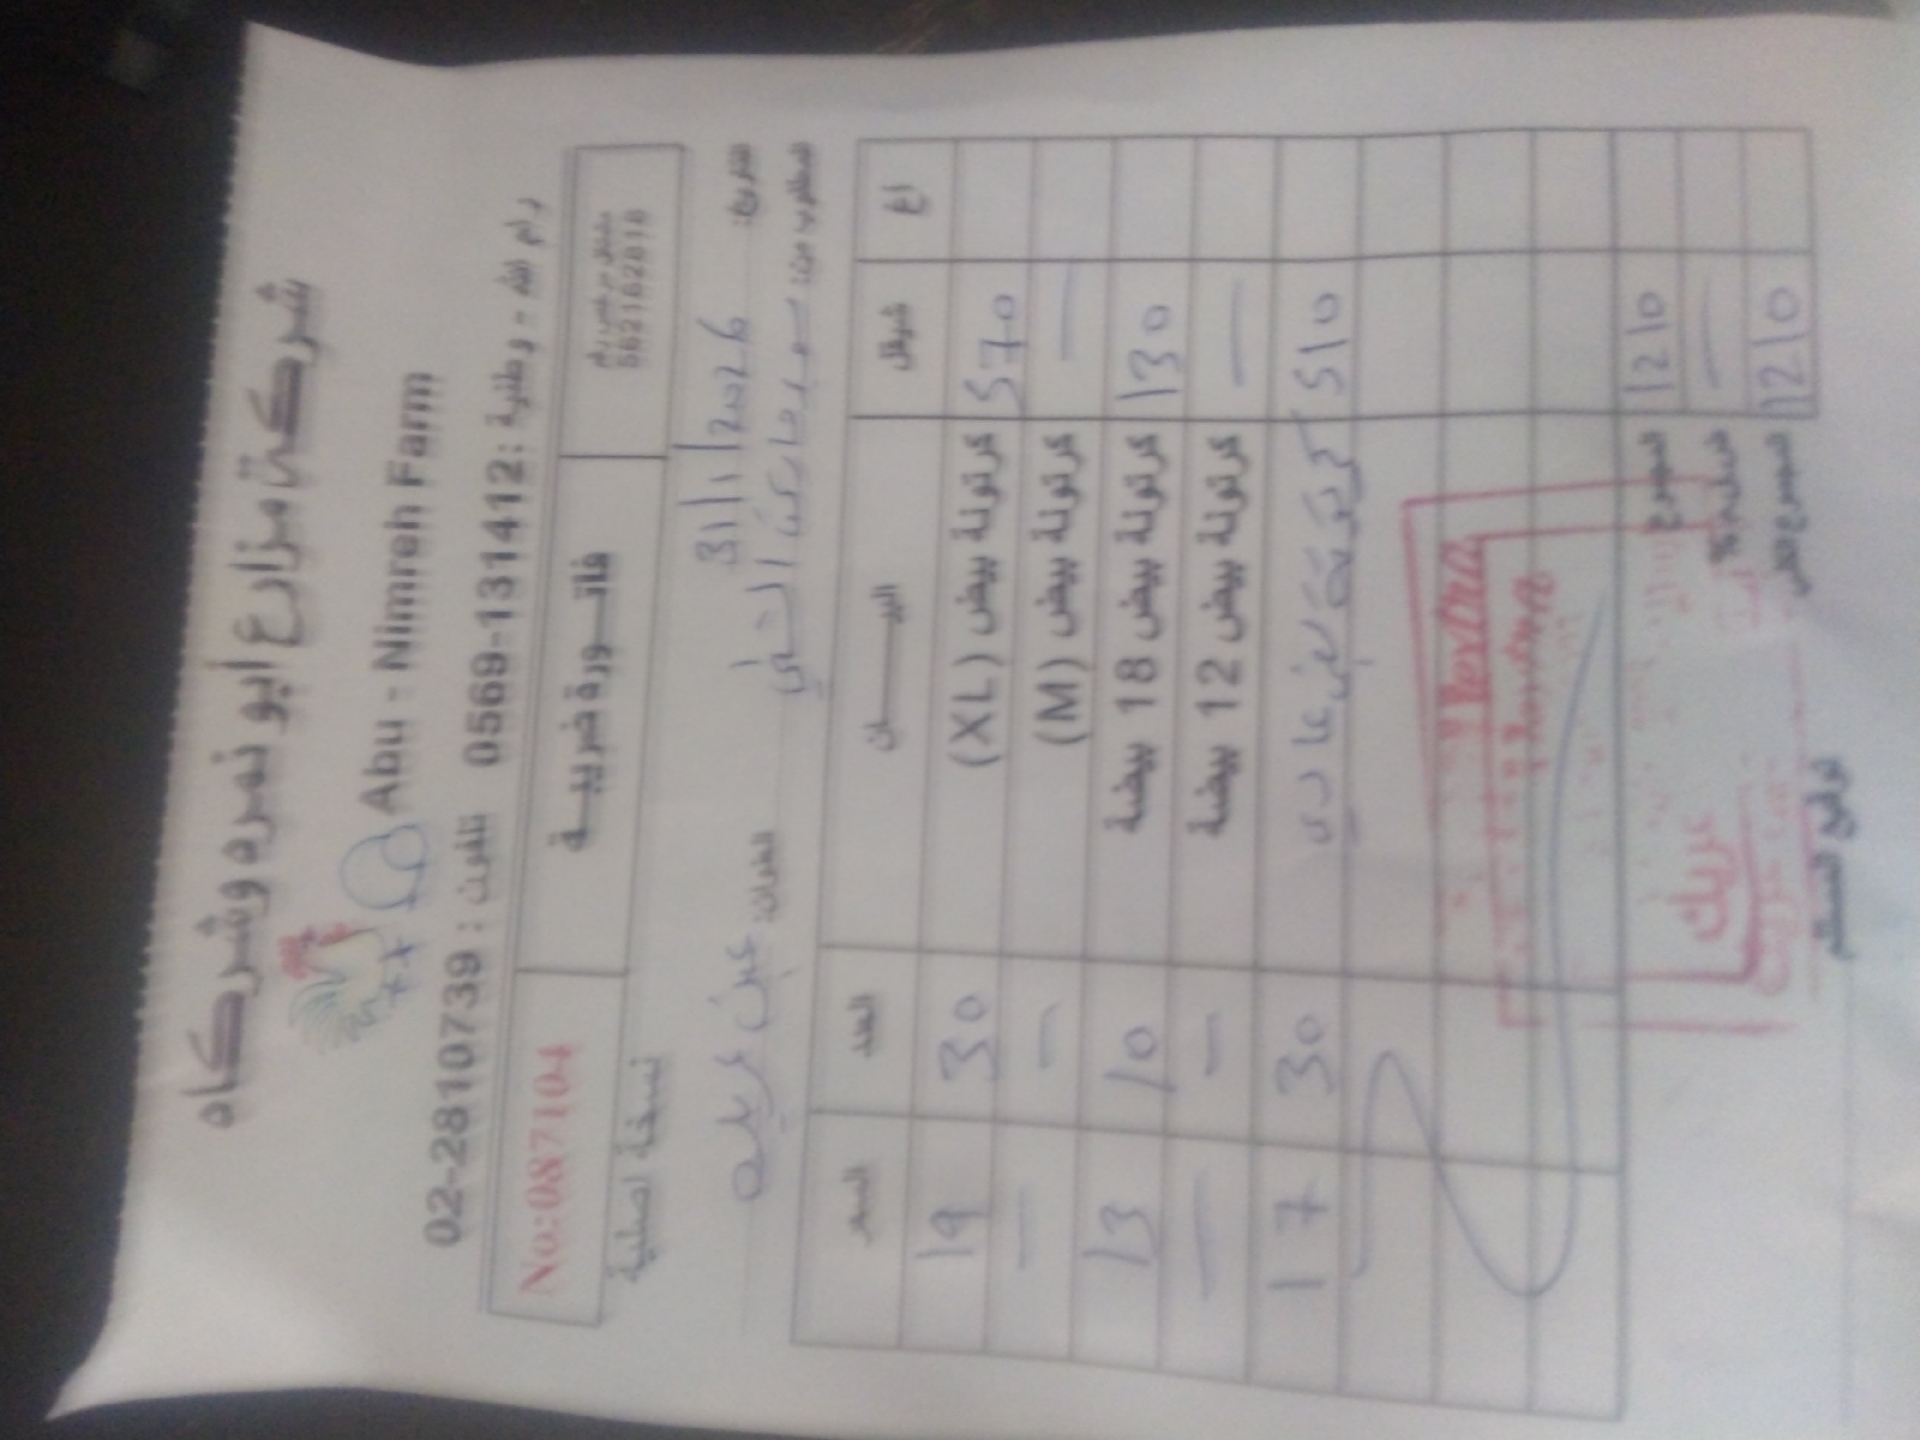 شركة مزارع أبو نمره وشركاه
Abu - Nimreh Farm
رام الله - وطنية : 0569-131412 تلفون : 02-2810739
مشتغل مرخص رقم
562162818
فاتـــورة ضريبيـــة
No:087104
نسخة اصلية
التاريخ: 31/1/2026 العنوان: عين عريك
المطلوب من: سوبر ماركت
اغ شيقل البيـــــــان العدد السعر
570 كرتونة بيض (XL) 30 19
— كرتونة بيض (M) — —
130 كرتونة بيض 18 بيضة 10 13
— كرتونة بيض 12 بيضة — —
510 كرتونة بيض عادي 30 17
1210 المجموع
—
1210 المجموع الكلي
عريك
توقيع المستلم